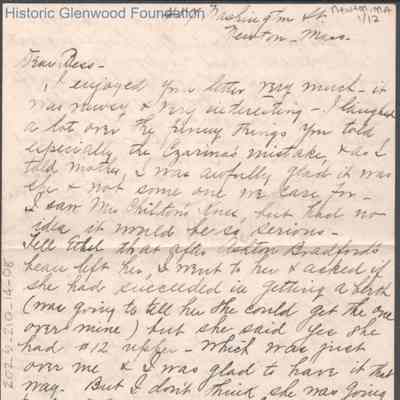 Historic Glenwood Foundation
Washington St.
Newton, MA
1/12
Newton - Mass.
Dear Bess -
I enjoyed your letter very much - it
was newsy & very interesting - I laughed
a lot over the funny things you told
especially the Czarina's mistake, & as I
told mother, I was awfully glad it was
she & not some one we care for -
I saw Mrs Chilton's knee, but had no
idea it would be so serious -
Tell Ethel that after Ashton Bradford's
beau left her, I went to her & asked if
she had succeeded in getting a berth
(was going to tell her she could get the one
over mine) but she said yes she
had #12 upper - which was just
over me & I was glad to have it that
way. But I don't think she was going
2025-210-14-08